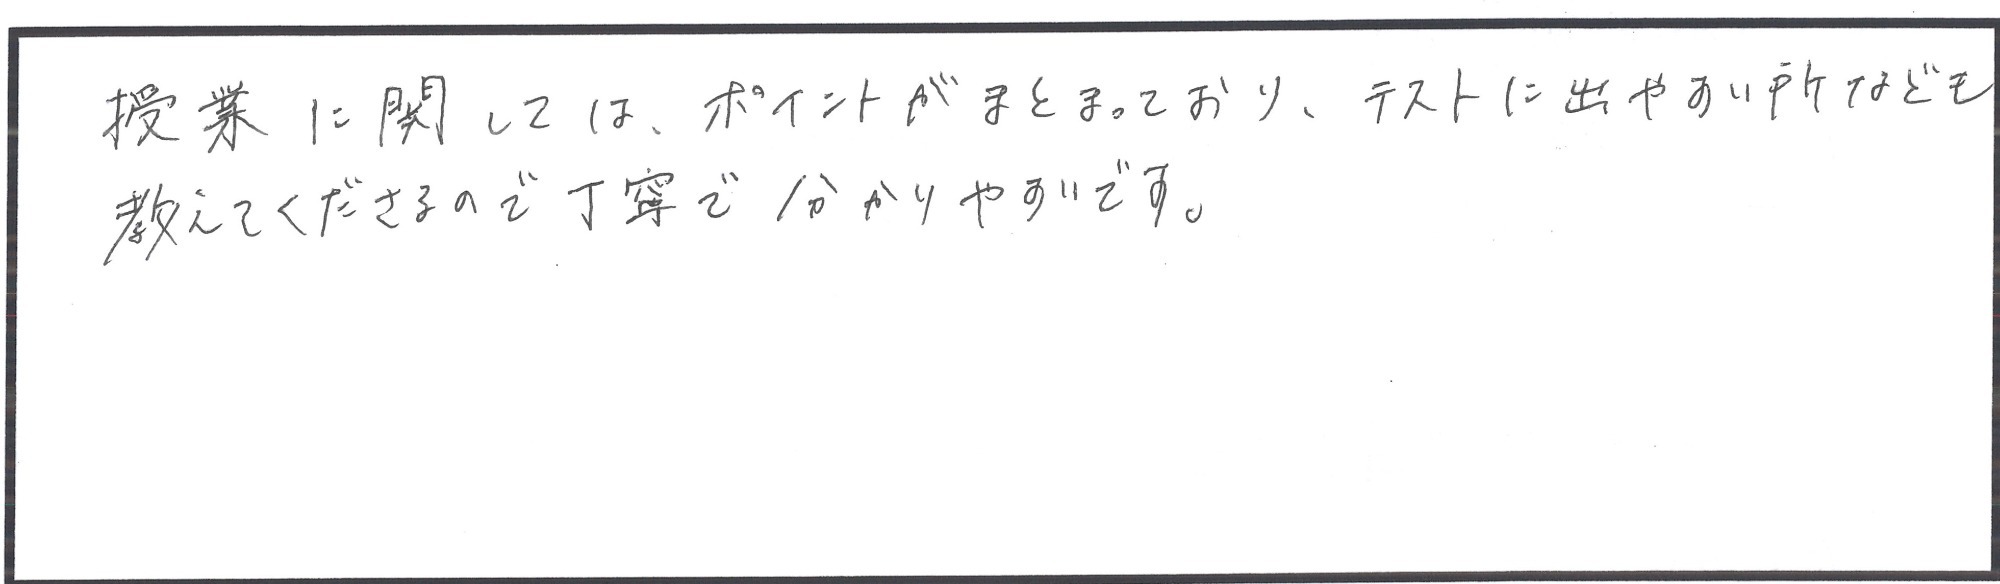 授業に関しては、ポイントがまとまっており、テストに出やすい所なども
教えてくださるので丁寧で分かりやすいです。